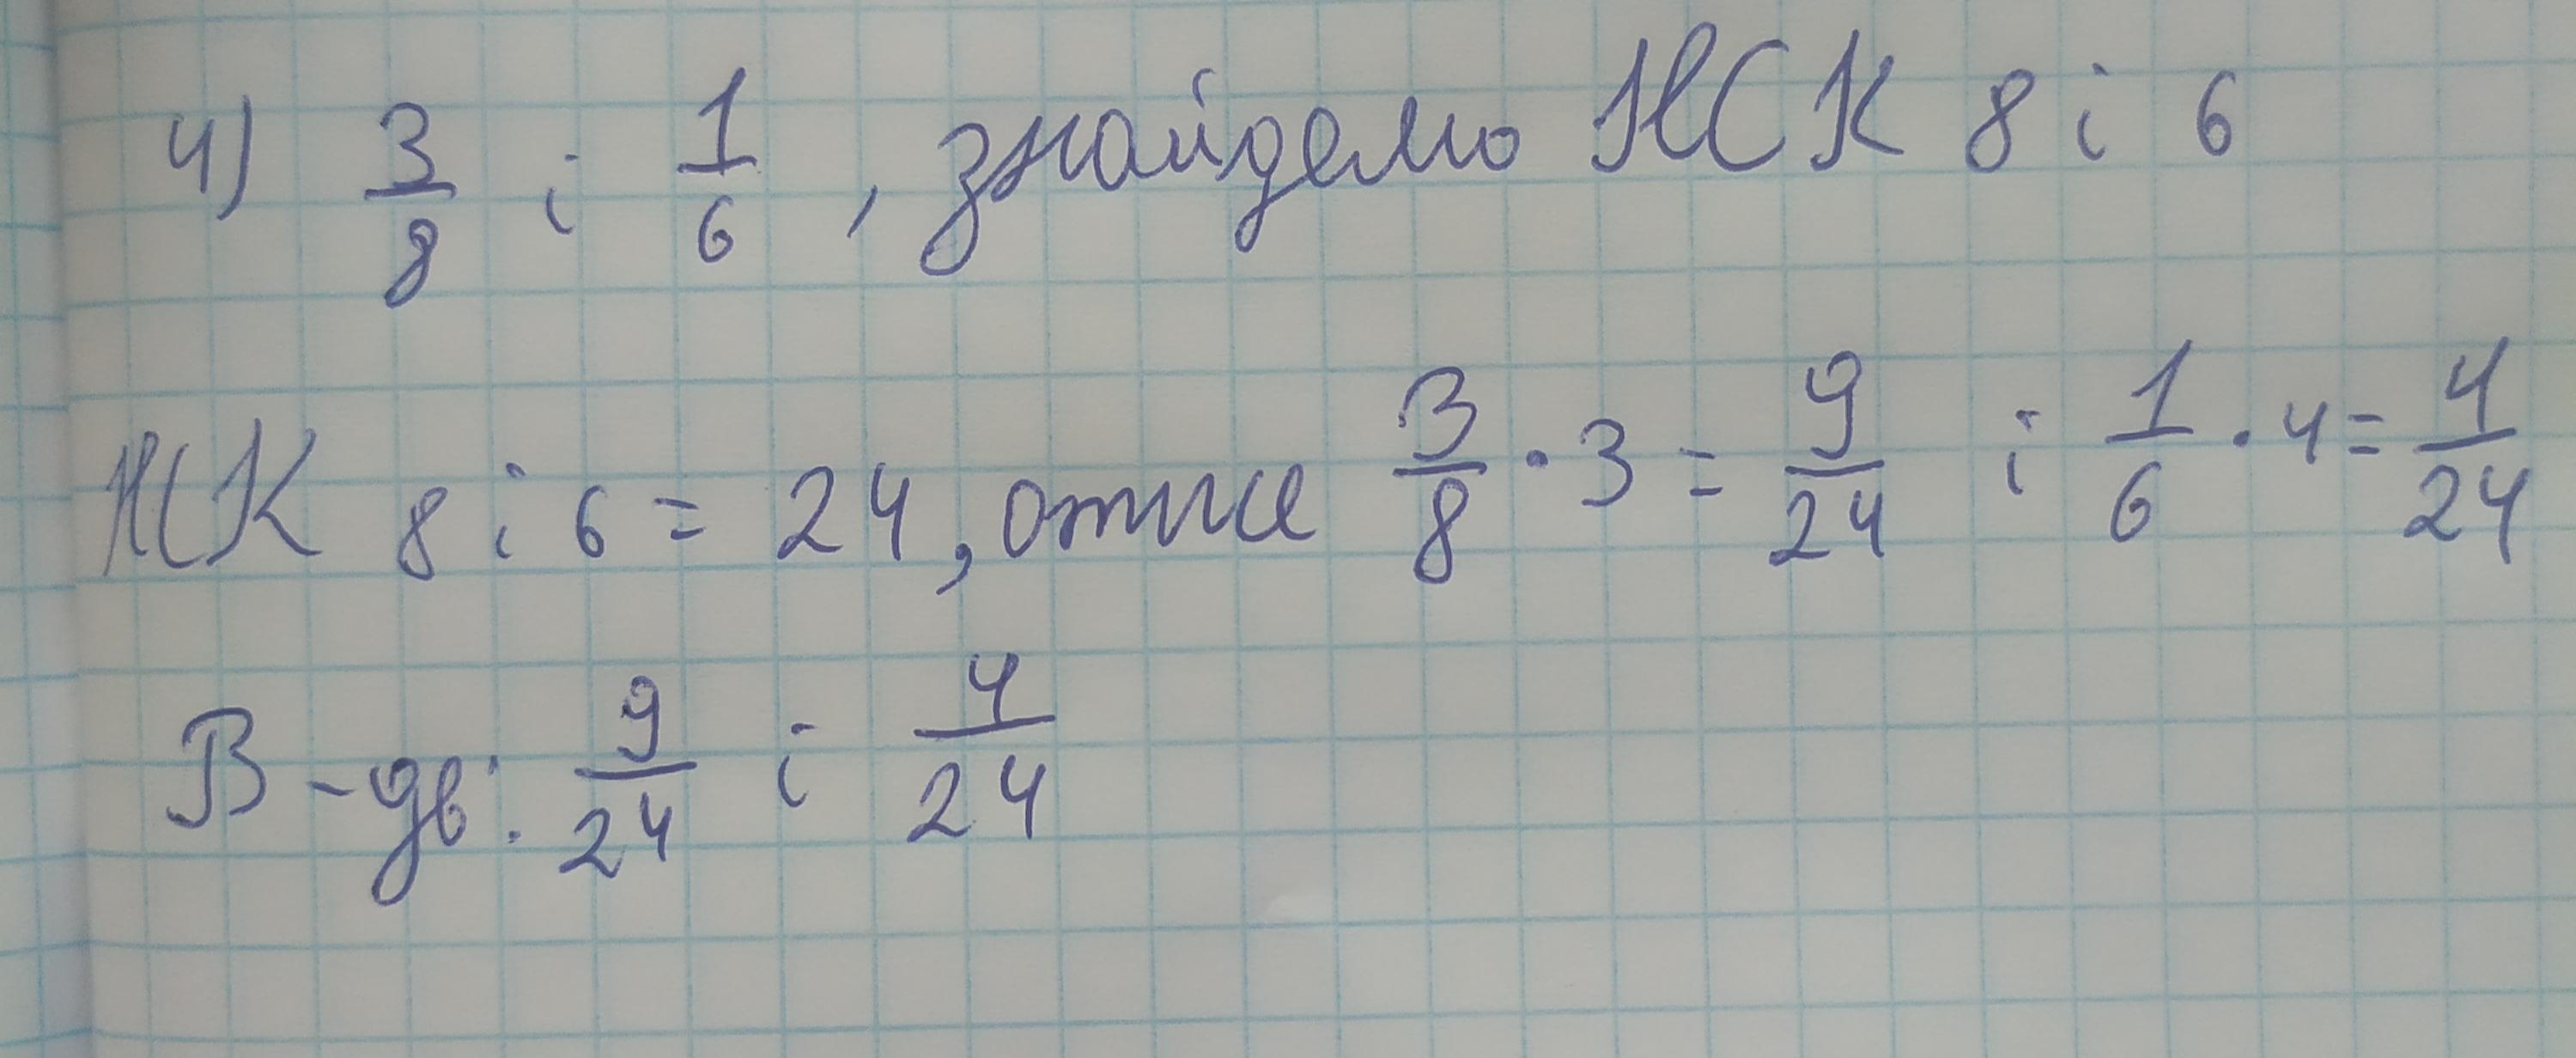 4) 3/8 і 1/6, знайдемо НСК 8 і 6
НСК 8 і 6 = 24, отже 3/8 · 3 = 9/24 і 1/6 · 4 = 4/24
В-дь: 9/24 і 4/24